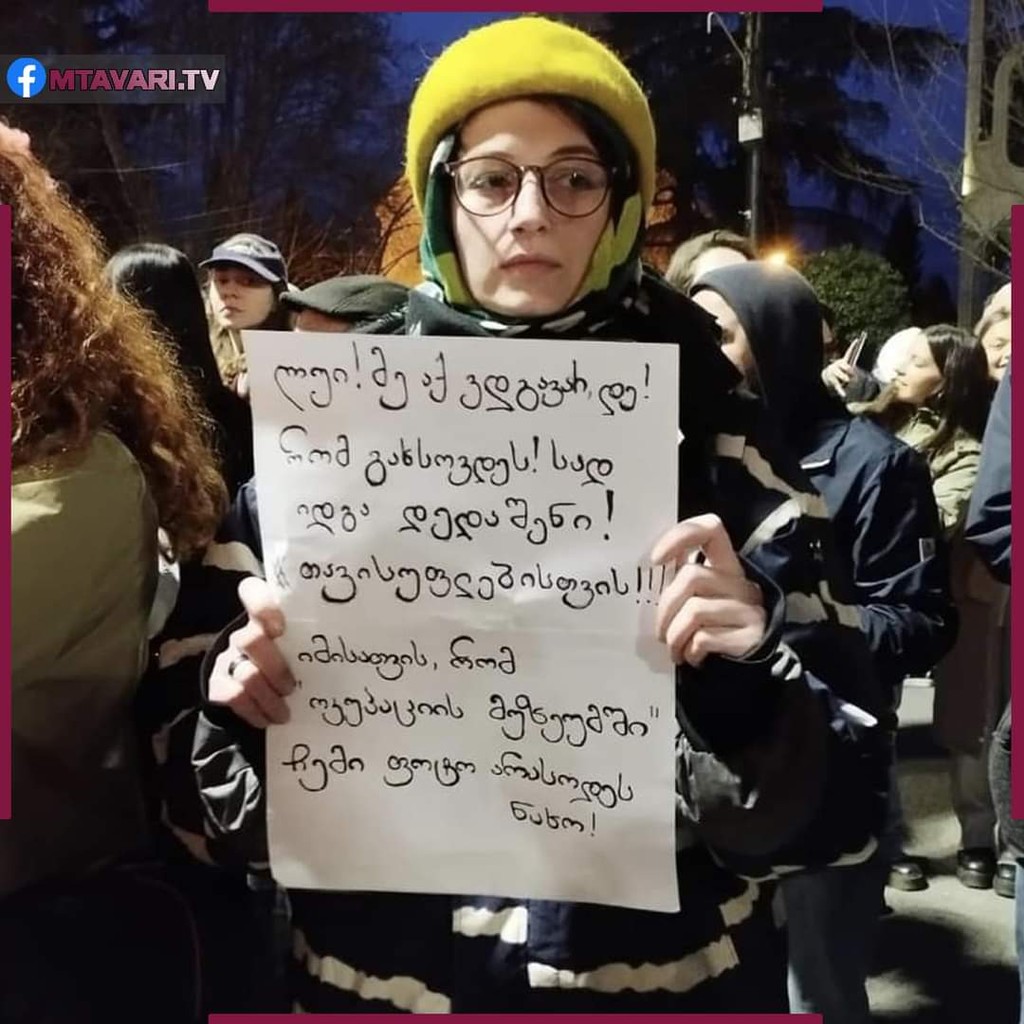 MTAVARI.TV
ლუი! მე აქ ვდგავარ, დე!
რომ გახსოვდეს! სად
იდგა დედაშენი!
# თავისუფლებისთვის!!!
იმისათვის, რომ
"ოკუპაციის მუზეუმში"
ჩემი ფოტო არასოდეს
ნახო!